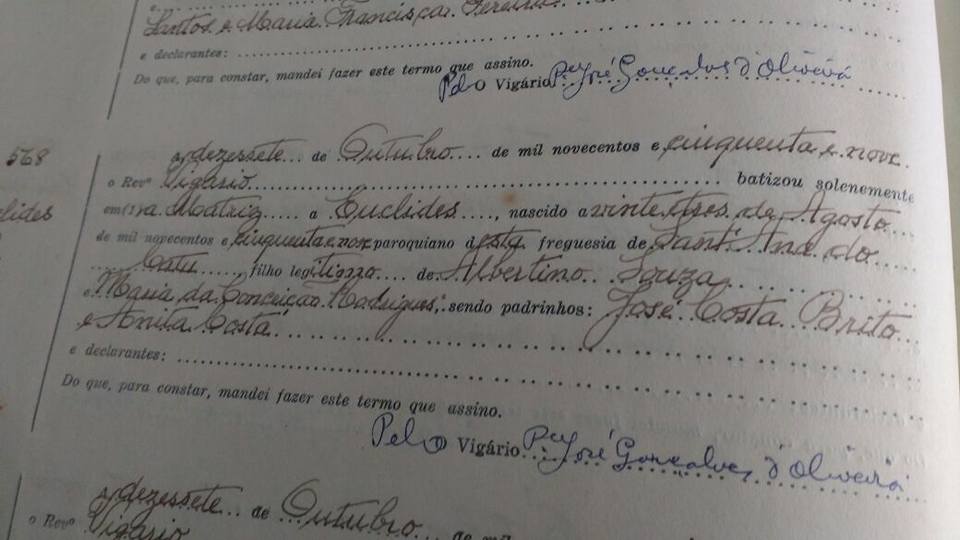 Santos e Maria Francisca Pereira
e declarantes:
Do que, para constar, mandei fazer este termo que assino.
Pelo O Vigário Pe José Gonçalves d'Oliveira
568
a dezessete de Outubro de mil novecentos e cinquenta e nove
o Revº Vigario batizou solenemente
em(1) na Matriz a Euclides, nascido a vinte e tres de Agosto
de mil novecentos e cinquenta e nove paroquiano desta freguesia de Sant'Ana do
Catu filho legitimo de Albertino Souza
e Maria da Conceição Rodrigues, sendo padrinhos: José Costa Brito
e Anita Costa
e declarantes:
Do que, para constar, mandei fazer este termo que assino.
Pelo O Vigário Pe José Gonçalves d'Oliveira
a dezessete de Outubro de mil
o Revº Vigario